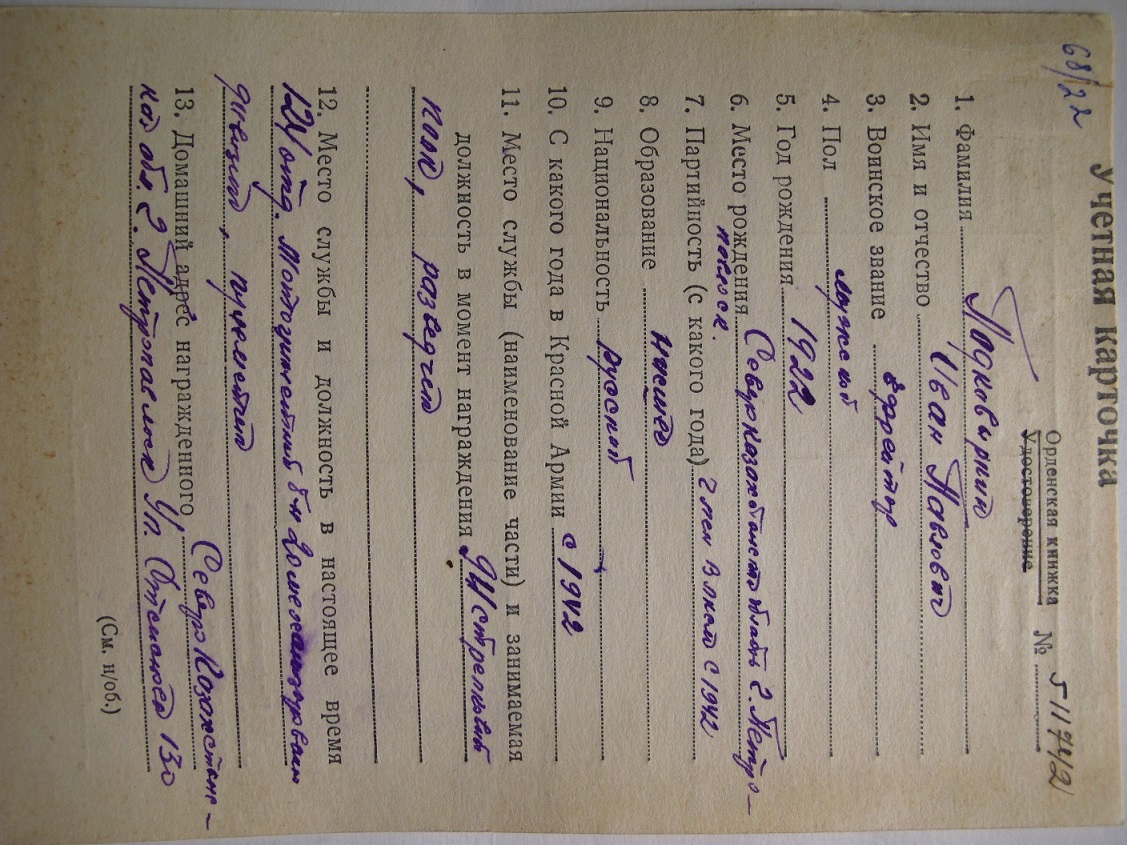 68/22
Учетная карточка
Орденская книжка
Удостоверение № 511742
1. Фамилия Подковыркин
2. Имя и отчество Иван Павлович
3. Воинское звание ефрейтор
4. Пол мужской
5. Год рождения 1922
6. Место рождения Север Казахстанск область г. Петро-
павлоск.
7. Партийность (с какого года) член влксм с 1942
8. Образование низшее
9. Национальность русский
10. С какого года в Красной Армии с 1942
11. Место службы (наименование части) и занимаемая
должность в момент награждения стрелковый
полк, разведчик
12. Место службы и должность в настоящее время
отд. Мотоциклетный б-н 20
пулеметчик
13. Домашний адрес награжденного Северо Казахстанс-
кая обл. г. Петропавлоск Ул. 130
(См. н/об.)